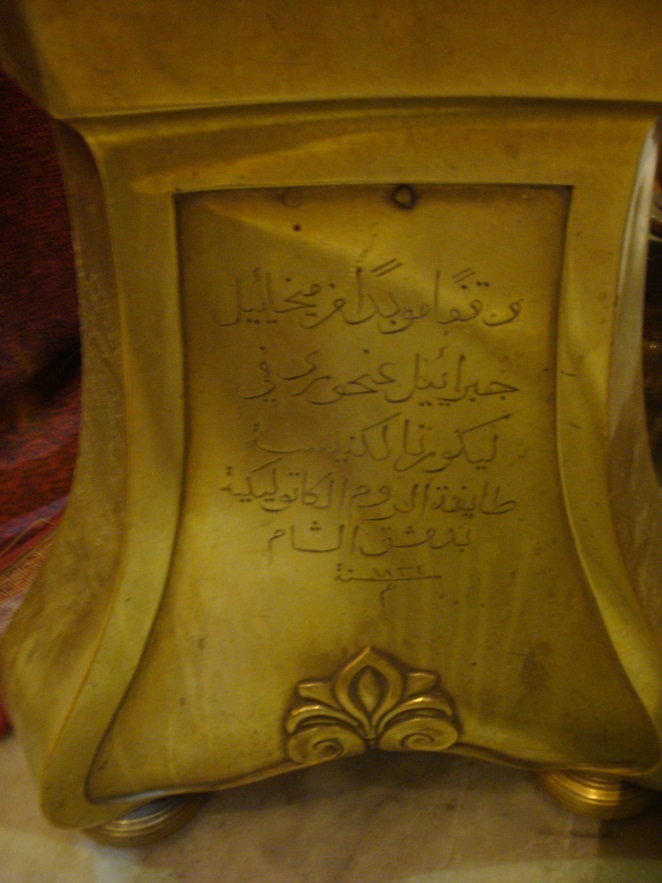 وقفًا موبدًا من ميخاييل
جبراييل عنحوري في
ليكورنا لكنيسة
طايفة الروم الكاتوليكية
بدمشق الشام
سنة ١٨٣٤
م